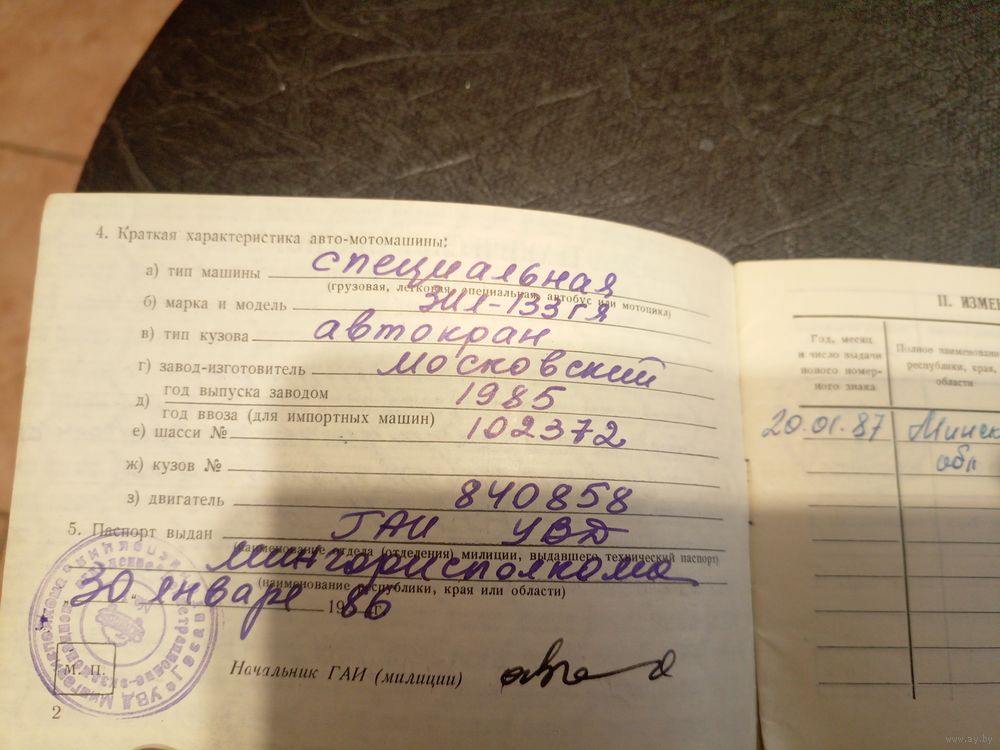 4. Краткая характеристика авто-мотомашины:
а) тип машины специальная
(грузовая, легковая, специальная, автобус или мотоцикл)
б) марка и модель ЗИЛ-133ГЯ
в) тип кузова автокран
г) завод-изготовитель Московский
д) год выпуска заводом 1985
год ввоза (для импортных машин)
е) шасси № 102372
ж) кузов №
з) двигатель 840858
5. Паспорт выдан ГАИ УВД
(наименование отдела (отделения) милиции, выдавшего технический паспорт)
Мингорисполкома
(наименование республики, края или области)
30 январе 1986
М. П.
Начальник ГАИ (милиции)
2
II. ИЗМЕН
Год, месяц
и число выдачи
нового номер-
ного знака
Полное наименовани
республики, края,
области
20.01.87 Минск
обл
www.ay.by